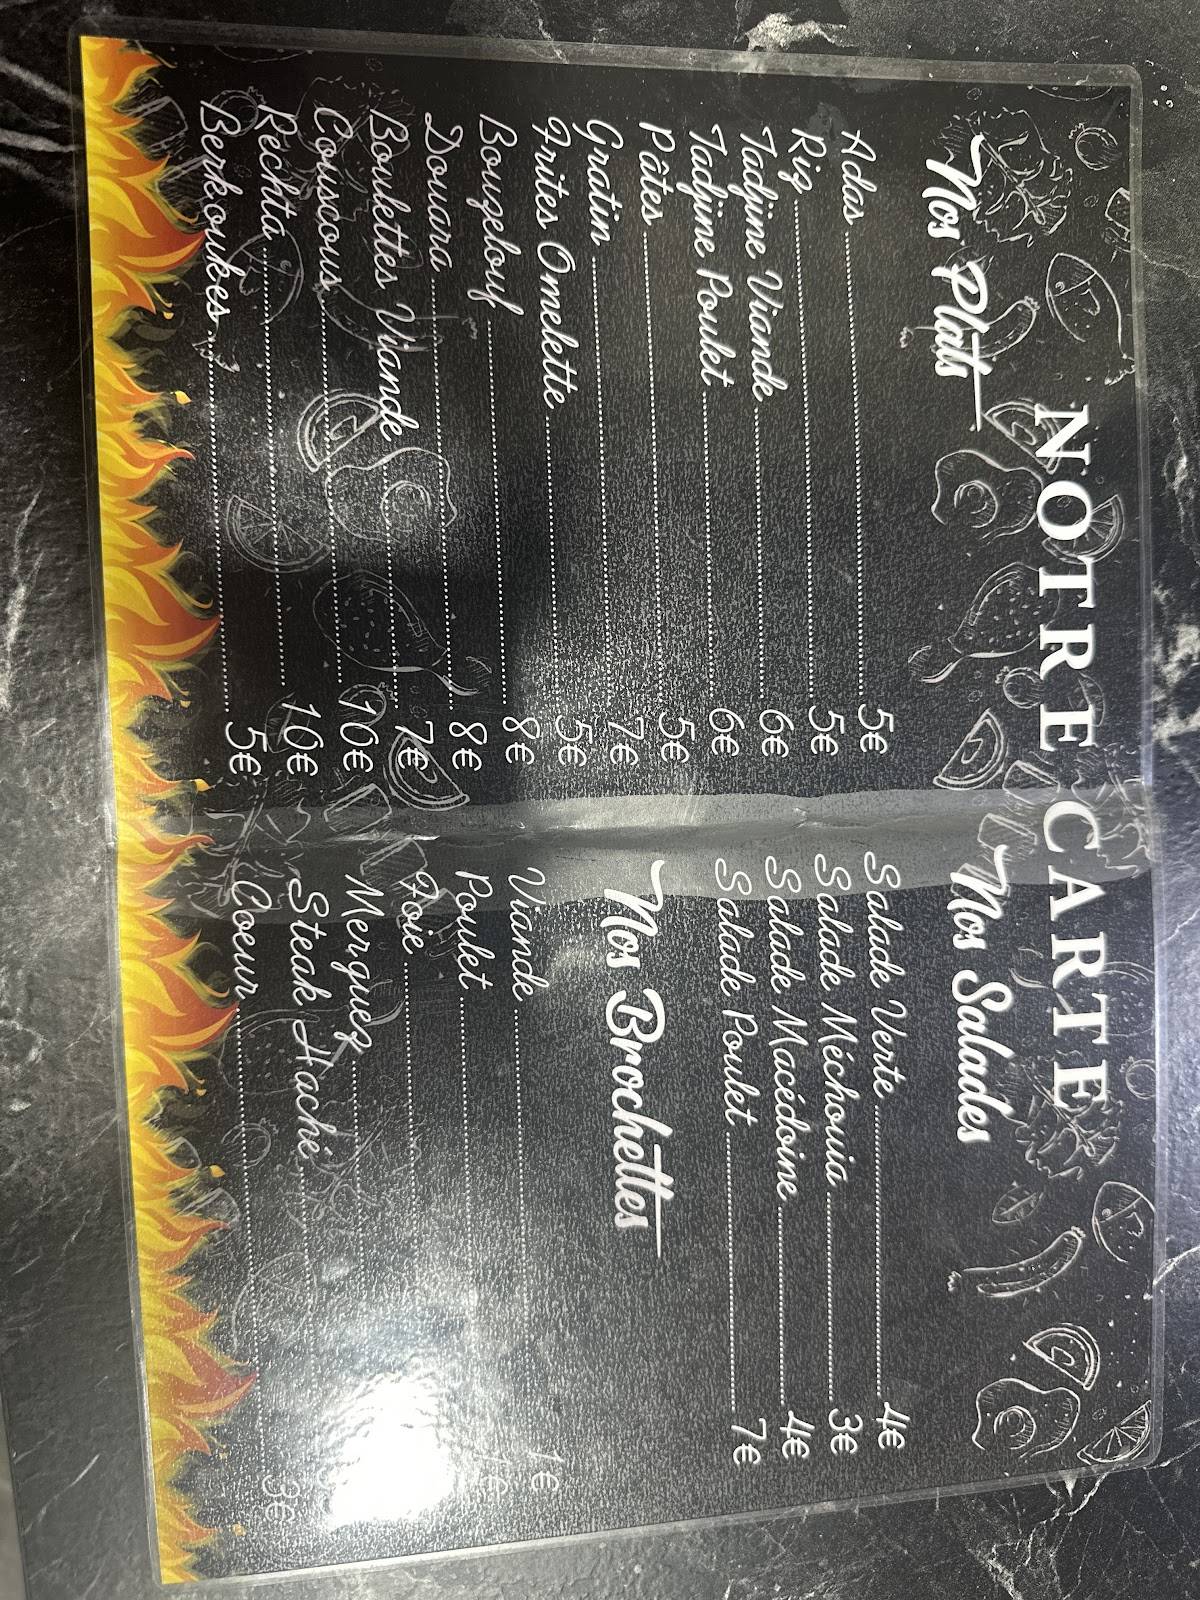 NOTRE CARTE
Nos Plats
Adas 5€
Riz 5€
Tadjine Viande 6€
Tadjine Poulet 6€
Pâtes 5€
Gratin 7€
Frites Omelette 5€
Bouzelouf 8€
Douara 8€
Boulettes Viande 7€
Couscous 10€
Rechta 10€
Berkoukes 5€
Nos Salades
Salade Verte 4€
Salade Méchouia 3€
Salade Macédoine 4€
Salade Poulet 7€
Nos Brochettes
Viande 1€
Poulet
Foie
Merguez
Steak Haché
Coeur 3€